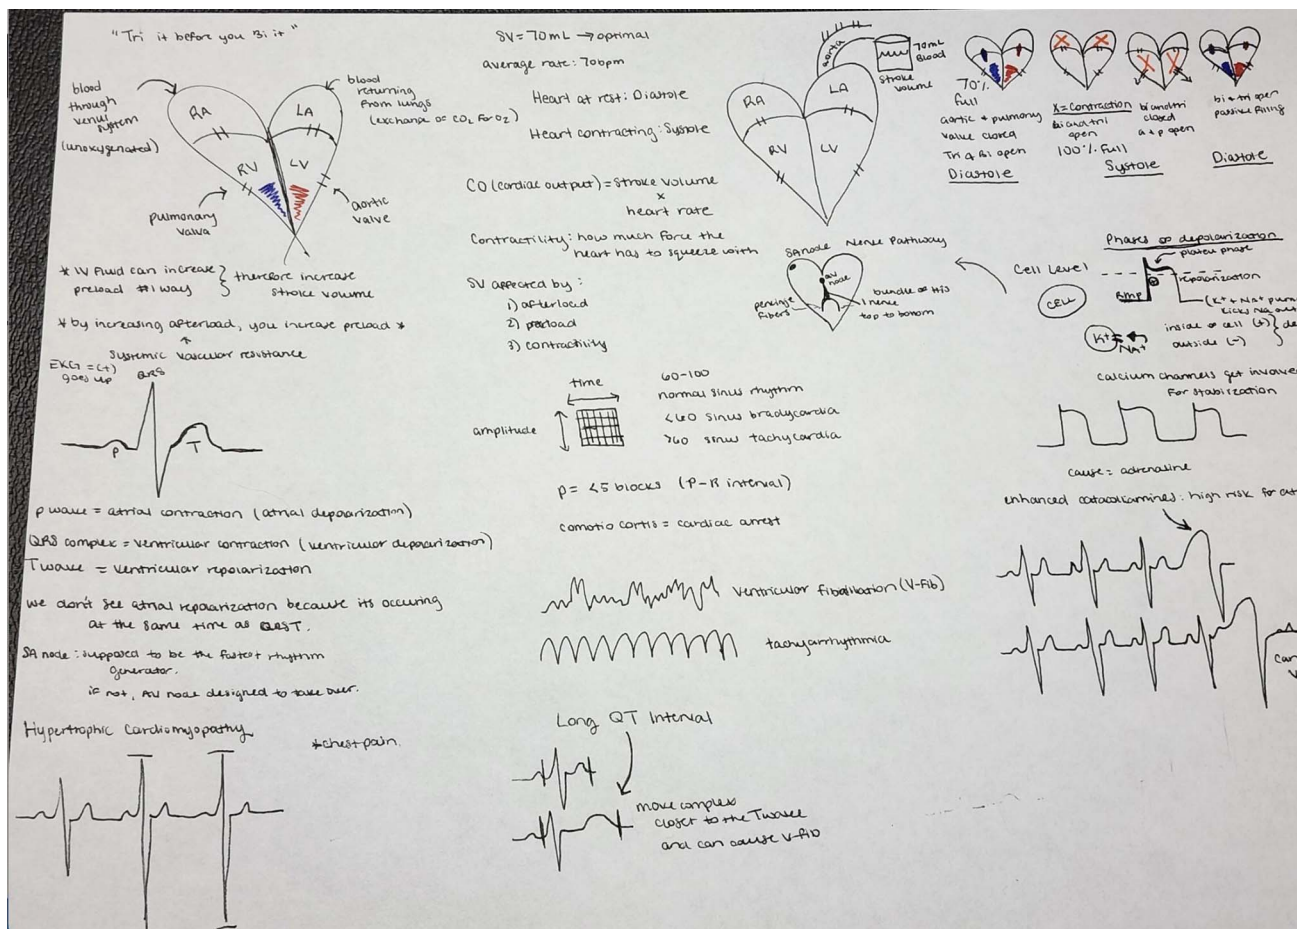 "Tri it before you Bi it"
blood
through
venus
system
(unoxygenated)
RA
LA
RV
LV
blood
returning
from lungs
(exchange of CO2 for O2)
pulmonary
valva
aortic
valve
* IV fluid can increase
preload #1 way
therefore increase
stroke volume
* by increasing afterload, you increase preload *
systemic vascular resistance
EKG = (+)
goes up
QRS
P
T
p wave = atrial contraction (atrial depolarization)
QRS complex = ventricular contraction (ventricular depolarization)
T wave = ventricular repolarization
we don't see atrial repolarization because its occuring
at the same time as QRST.
SA node: supposed to be the fastest rhythm
generator.
if not, AV node designed to take over.
Hypertrophic Cardiomyopathy
*chest pain.
SV = 70mL → optimal
average rate: 70bpm
Heart at rest: Diastole
Heart contracting: Systole
CO (cardiac output) = stroke volume
x
heart rate
Contractility: how much force the
heart has to squeeze with
SV affected by:
1) afterload
2) preload
3) contractility
time
amplitude
60-100
normal sinus rhythm
<60 sinus bradycardia
>60 sinus tachycardia
p = <5 blocks (P-R interval)
comotio cortis = cardiac arrest
ventricular fibalilation (V-Fib)
tachyarrhythmia
Long QT Interval
move complex
closer to the T wave
and can cause V-fib
aorta
70mL
Blood
stroke
volume
RA
LA
RV
LV
SA node
Nerve Pathway
AV
node
perkinge
fibers
bundle of his
1 nerve
top to bottom
70%
full
aortic + pulmonary
valve closed
Tri & Bi open
Diastole
X = contraction
bi and tri
open
100% full
bi and tri
closed
a + p open
Systole
bi + tri open
passive filling
Diastole
Phases of depolarization
plateu phase
repolarization
Rmp
(K+ + Na+ pum
kicks Na out
Cell Level
CELL
K+
NA+
inside of cell (+)
outside (-)
calcium channels get involve
for stabilization
cause = adrenaline
enhanced catacoliamines: high risk for